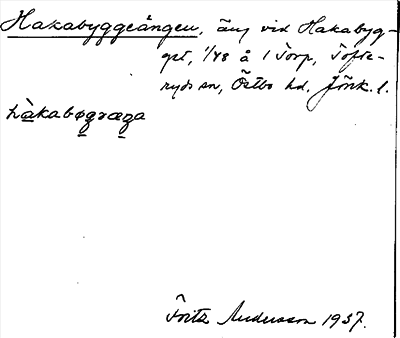 Hakabyggeången, äng vid Hakabyg-
get, 1/48 å 1 Torp, Tofte-
ryds sn, Östbo hd. Jönk. l.
hàkabøgræŋa
Fritz Andersson 1937.